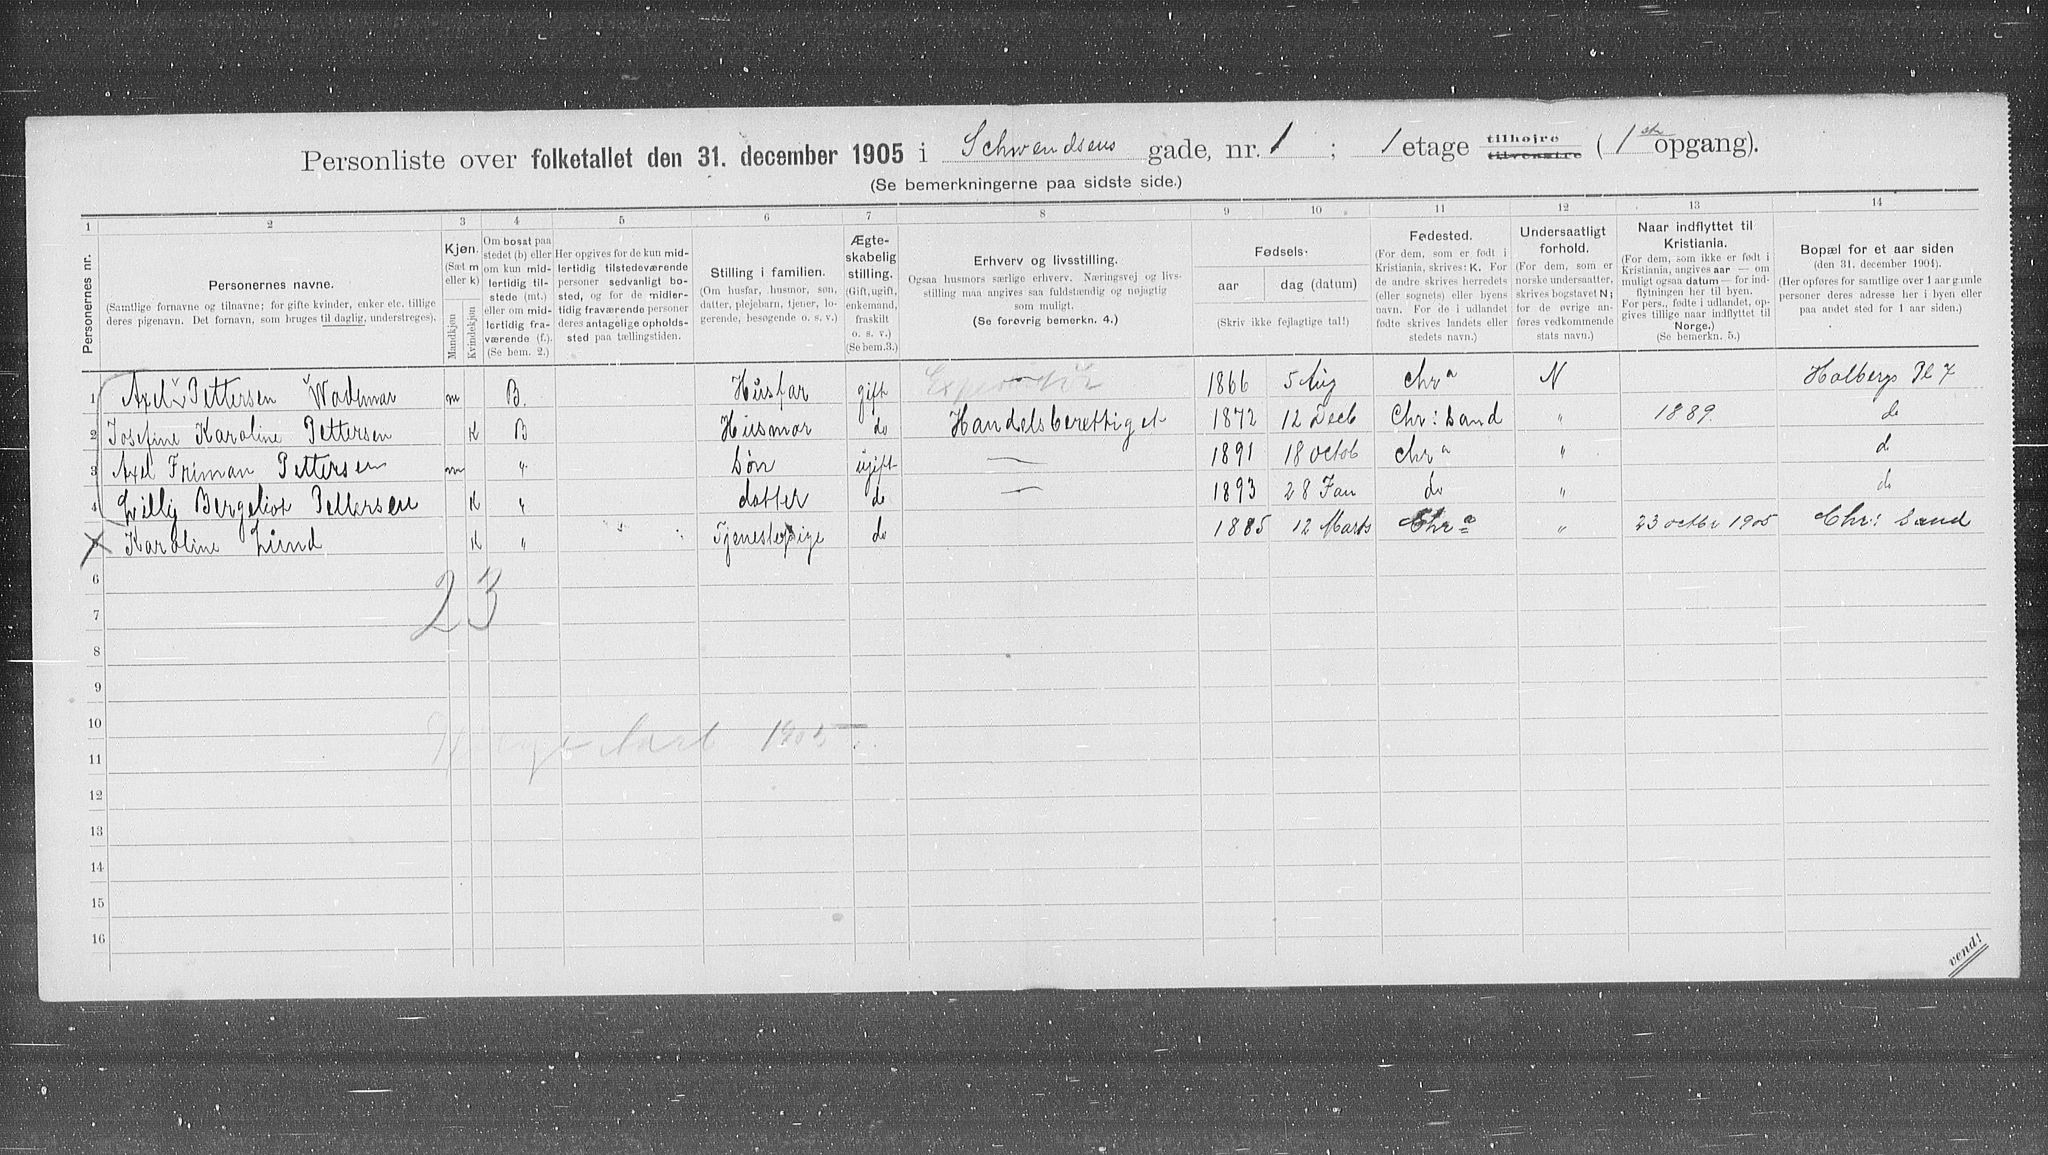 Personliste over folketallet den 31. december 1905 i Schwendsens gade, nr. 1 ; 1 etage tilhøjre tilvenstre ( 1ste opgang).
(Se bemerkningerne paa sidste side.)
1 2 3 4 5 6 7 8 9 10 11 12 13 14
Personernes nr.
Personernes navne.
(Samtlige fornavne og tilnavne; for gifte kvinder, enker etc. tillige
deres pigenavn. Det fornavn, som bruges til daglig, understreges).
Kjøn.
(Sæt m
eller k)
Mandkjøn
Kvindekjøn
Om bosat paa
stedet (b) eller
om kun mid-
lertidig til-
stede (mt.)
eller om mid-
lertidig fra-
værende (f.).
(Se bem. 2.)
Her opgives for de kun mid-
lertidig tilstedeværende
personer sedvanligt bo-
sted, og for de midler-
tidig fraværende personer
deres antagelige opholds-
sted paa tællingstiden.
Stilling i familien.
(Om husfar, husmor, søn,
datter, plejebarn, tjener, lo-
gerende, besøgende o. s. v.)
Ægte-
skabelig
stilling.
(Gift, ugift,
enkemand,
fraskilt
o. s. v.)
(Se bem.3.)
Erhverv og livsstilling.
Ogsaa husmors særlige erhverv. Næringsvej og livs-
stilling maa angives saa fuldstændig og nøjagtig
som muligt.
(Se forøvrig bemerkn. 4.)
Fødsels-
aar dag (datum)
(Skriv ikke fejlagtige tal!)
Fødested.
(For dem, som er født i
Kristiania, skrives: K. For
de andre skrives herredets
(eller sognets) eller byens
navn. For de i udlandet
fødte skrives landets eller
stedets navn.)
Undersaatligt
forhold.
(For dem, som er
norske undersaatter,
skrives bogstavet N;
for de øvrige an-
føres vedkommende
stats navn.)
Naar indflyttet til
Kristiania.
(For dem, som ikke er født i
Kristiania, angives aar — om
muligt ogsaa datum — for ind-
flytningen her til byen.
For pers., fødte i udlandet, op-
gives tillige naar indflyttet til
Norge.)
(Se bemerkn. 5.)
Bopæl for et aar siden
(den 31. december 1904).
(Her opføres for samtlige over 1 aar gamle
personer deres adresse her i byen eller
paa andet sted for 1 aar siden.)
1 Axel Pettersen Wademar m B. Husfar gift 1866 5 Aug Chra N Holbergs Pl 7
2 Josefine Karoline Pettersen K B Husmor do Handelsberettiget 1872 12 Decb Chr: Sand " 1889. do
3 Axel Friman Pettersen m " Søn ugift — 1891 18 octob Chra " do
4 Lilly Bergeliot Pettersen K " datter do — 1893 28 Jan do " do
Karoline Lund K " Tjenestepige do 1885 12 Marts Chra " 23 octbr 1905 Chr: Sand
6
2 3
7
8
9
10
1905
11
12
13
14
15
16
vend!